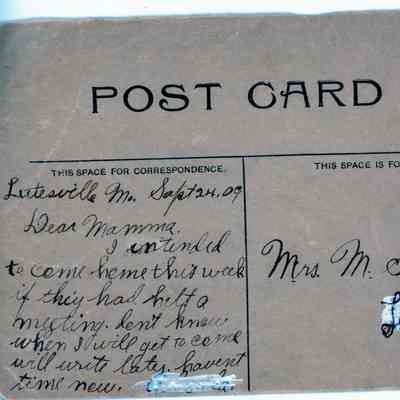 POST CARD
THIS SPACE FOR CORRESPONDENCE.
THIS SPACE IS FO
Lutesville Mo. Sept 24, 09
Dear Mamma.
I intended
to come home this week
if they had helt a
meeting. don't know
when I will get to come
will write later. havent
time now.
Mrs. M.